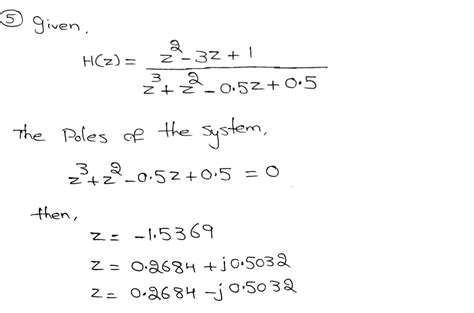 5 Given,
H(z) = z² - 3z + 1 / z³ + z² - 0.5z + 0.5
The Poles of the system,
z³ + z² - 0.5z + 0.5 = 0
then,
z = -1.5369
z = 0.2684 + j0.5032
z = 0.2684 - j0.5032